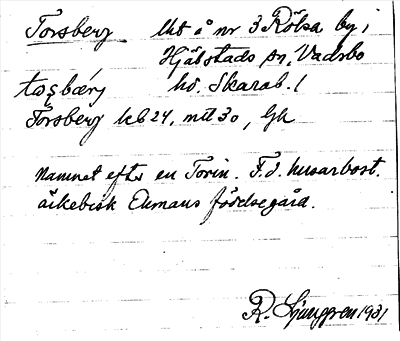 Torsberg Uht å nr 3 Rölsa by i
Hjälstads sn, Vadsbo
hd. Skarab. l
toşbærj
Torsberg kb 24, mtl 30, Gh
Namnet efter en Torin. F.d. husarbost.
ärkebisk Ekmans födelsegård.
R. Ljunggren 1931